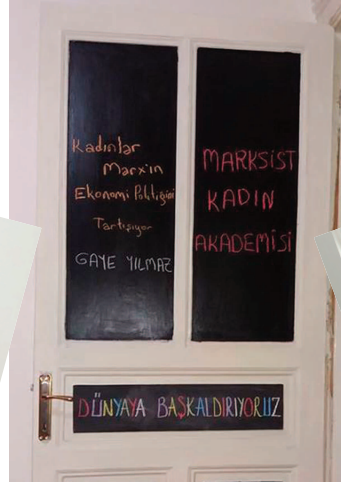 Kadınlar
Marx'ın
Ekonomi Politiğini
Tartışıyor
GAYE YILMAZ
MARKSİST
KADIN
AKADEMİSİ
DÜNYAYA BAŞKALDIRIYORUZ